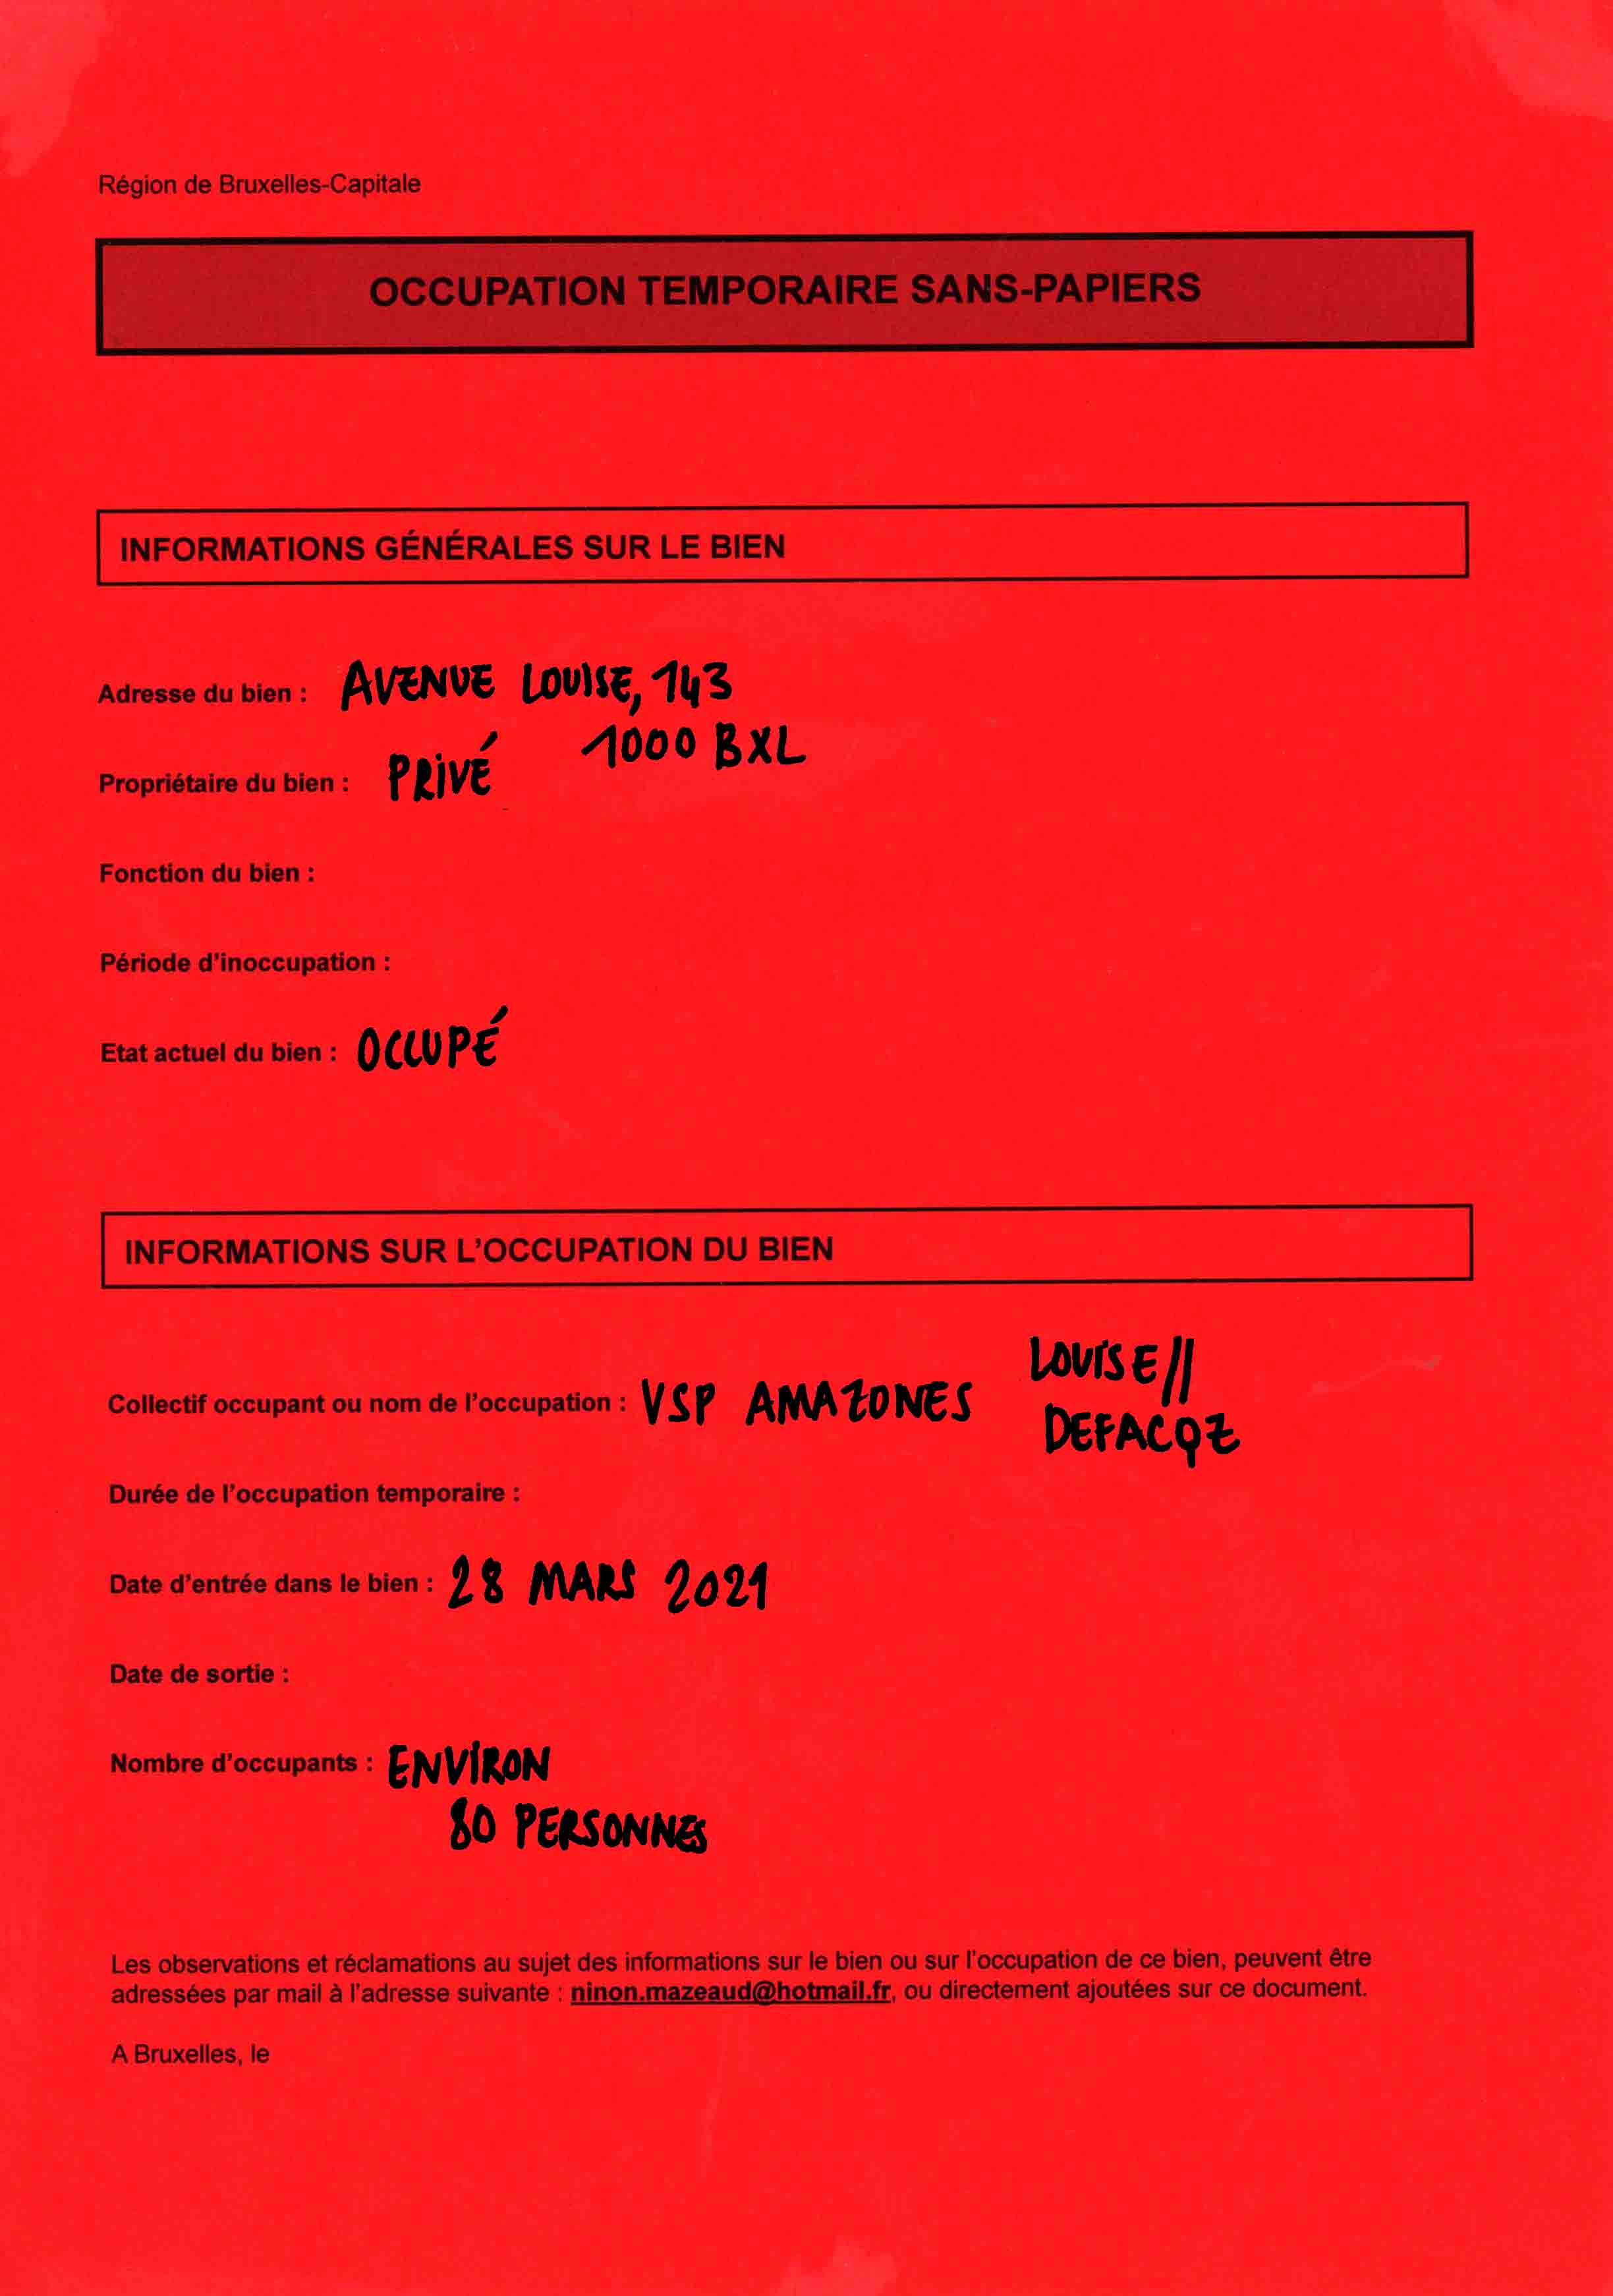 Région de Bruxelles-Capitale
OCCUPATION TEMPORAIRE SANS-PAPIERS
INFORMATIONS GÉNÉRALES SUR LE BIEN
Adresse du bien : AVENUE LOUISE, 143
1000 BXL
Propriétaire du bien : PRIVÉ
Fonction du bien :
Période d'inoccupation :
Etat actuel du bien : OCCUPÉ
INFORMATIONS SUR L'OCCUPATION DU BIEN
Collectif occupant ou nom de l'occupation : VSP AMAZONES LOUISE//
DEFACQZ
Durée de l'occupation temporaire :
Date d'entrée dans le bien : 28 MARS 2021
Date de sortie :
Nombre d'occupants : ENVIRON
80 PERSONNES
Les observations et réclamations au sujet des informations sur le bien ou sur l'occupation de ce bien, peuvent être
adressées par mail à l'adresse suivante : ninon.mazeaud@hotmail.fr, ou directement ajoutées sur ce document.
A Bruxelles, le